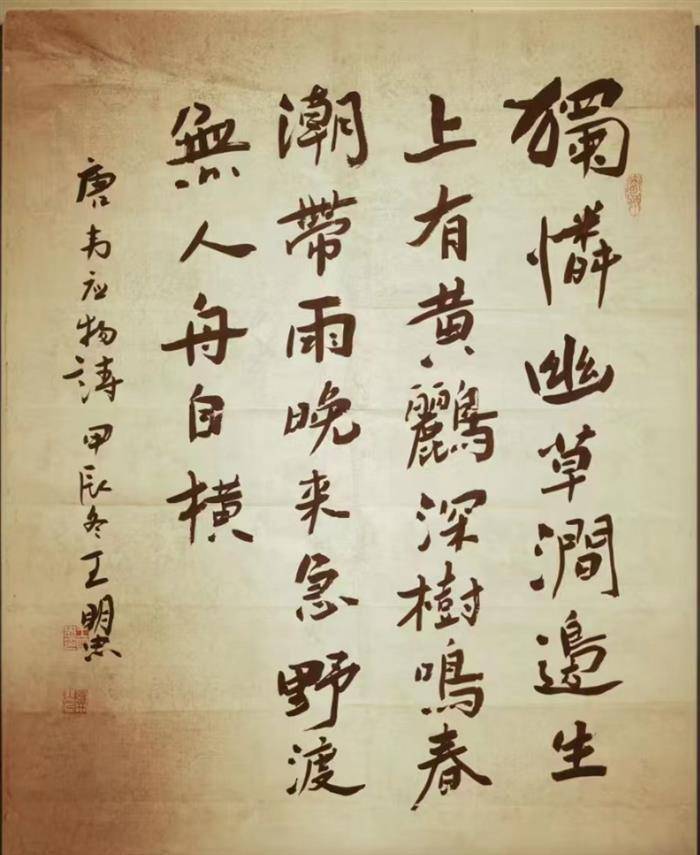 獨憐幽草澗邊生
上有黄鸝深樹鳴春
潮帶雨晚来急野渡
無人舟自横
唐韦应物詩甲辰冬王明